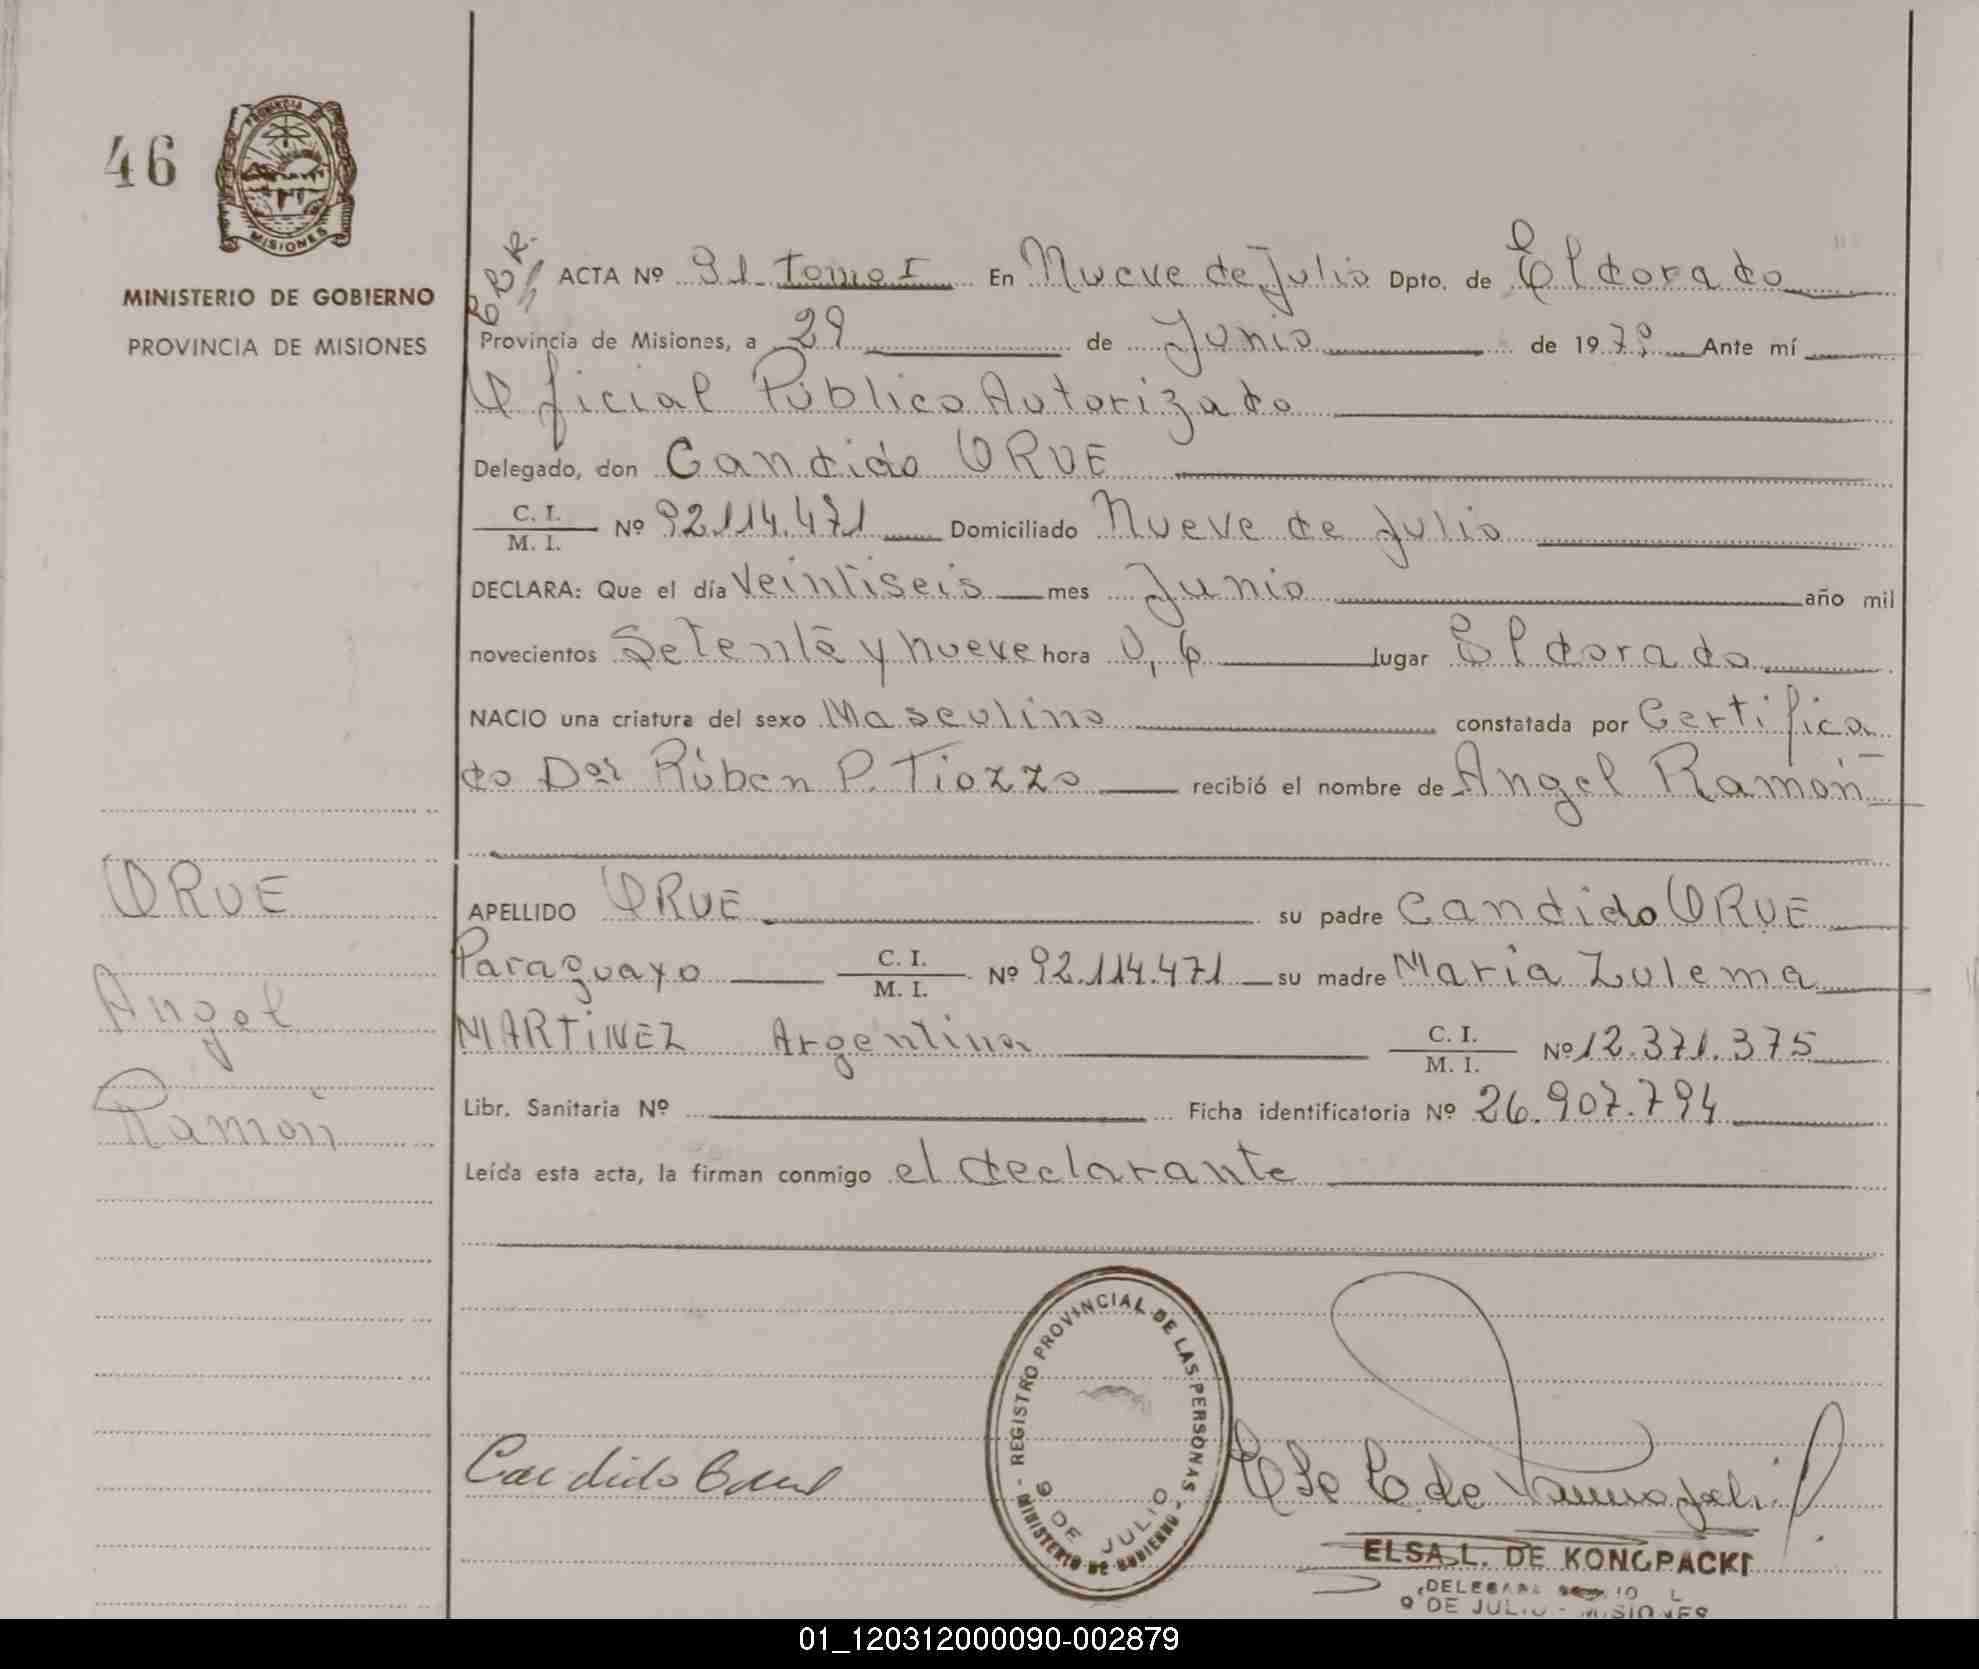 46
PROVINCIA
MISIONES
MINISTERIO DE GOBIERNO
PROVINCIA DE MISIONES
ACTA Nº 91 tomo I En Nueve de Julio Dpto. de Eldorado
Provincia de Misiones, a 29 de Junio de 1979 Ante mí
Oficial Público Autorizado
Delegado, don Candido ORUE
C. I. / M. I. Nº 92.114.471 Domiciliado Nueve de Julio
DECLARA: Que el día Veintiseis mes Junio año mil
novecientos Setenta y nueve hora 0,6 lugar Eldorado
NACIO una criatura del sexo Masculino constatada por Certifica
do Dor Rúben P. Tiozzo recibió el nombre de Angel Ramón
ORUE
Angel
Ramón
APELLIDO ORUE su padre Candido ORUE
Paraguayo C. I. / M. I. Nº 92.114.471 su madre Maria Zulema
MARTiNEZ Argentina C. I. / M. I. Nº 12.371.375
Libr. Sanitaria Nº Ficha identificatoria Nº 26.907.794
Leída esta acta, la firman conmigo el declarante
REGISTRO PROVINCIAL DE LAS PERSONAS
9 DE JULIO
MINISTERIO DE GOBIERNO
Candido
ELSA L. DE KONOPACKI
9 DE JULIO - MISIONES
01_120312000090-002879